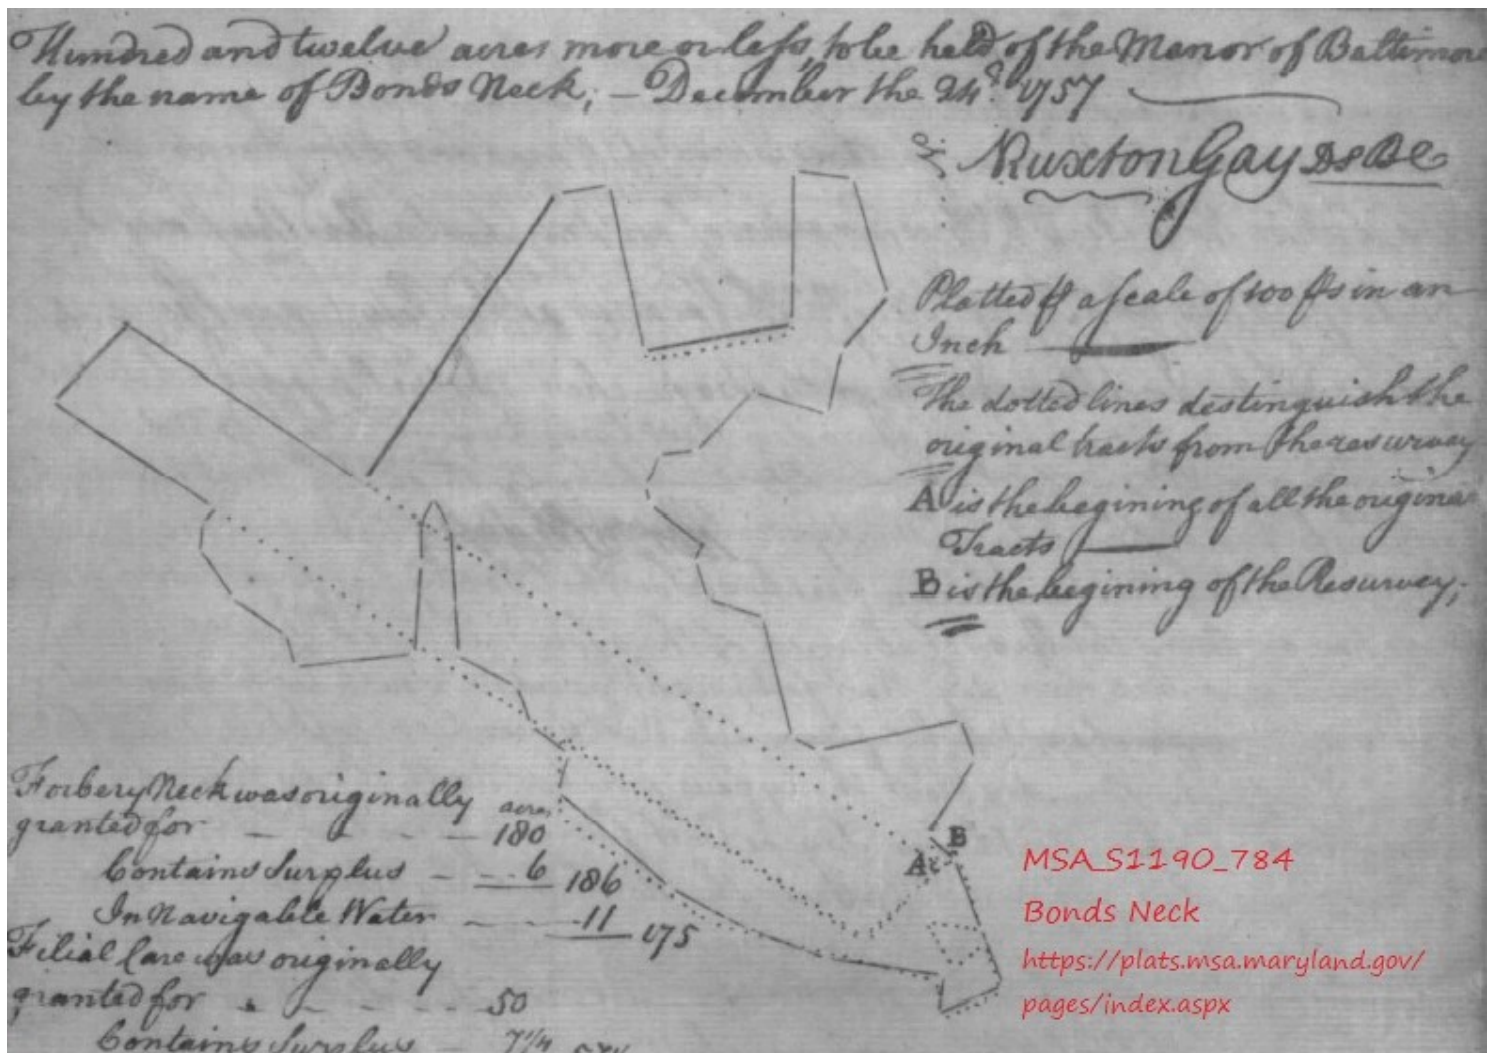 Hundred and twelve acres more or less, to be held of the Manor of Baltimore
by the name of Bonds Neck; — December the 24.d 1757
Nuxton Gay DS BC
Platted a scale of 100 ps in an
Inch
The dotted lines destinguish the
original tracts from the resurvey
A is the begining of all the original
Tracts
B is the begining of the Resurvey;
B
A
Forbery Neck was originally acres
granted for - - - - 180
Contains Surplus - - - 6 186
In Navigable Water - - - 11 175
Filial Care was originally
granted for - - - - 50
Contains Surplus - 7 1/4
MSA_S1190_784
Bonds Neck
https://plats.msa.maryland.gov/
pages/index.aspx